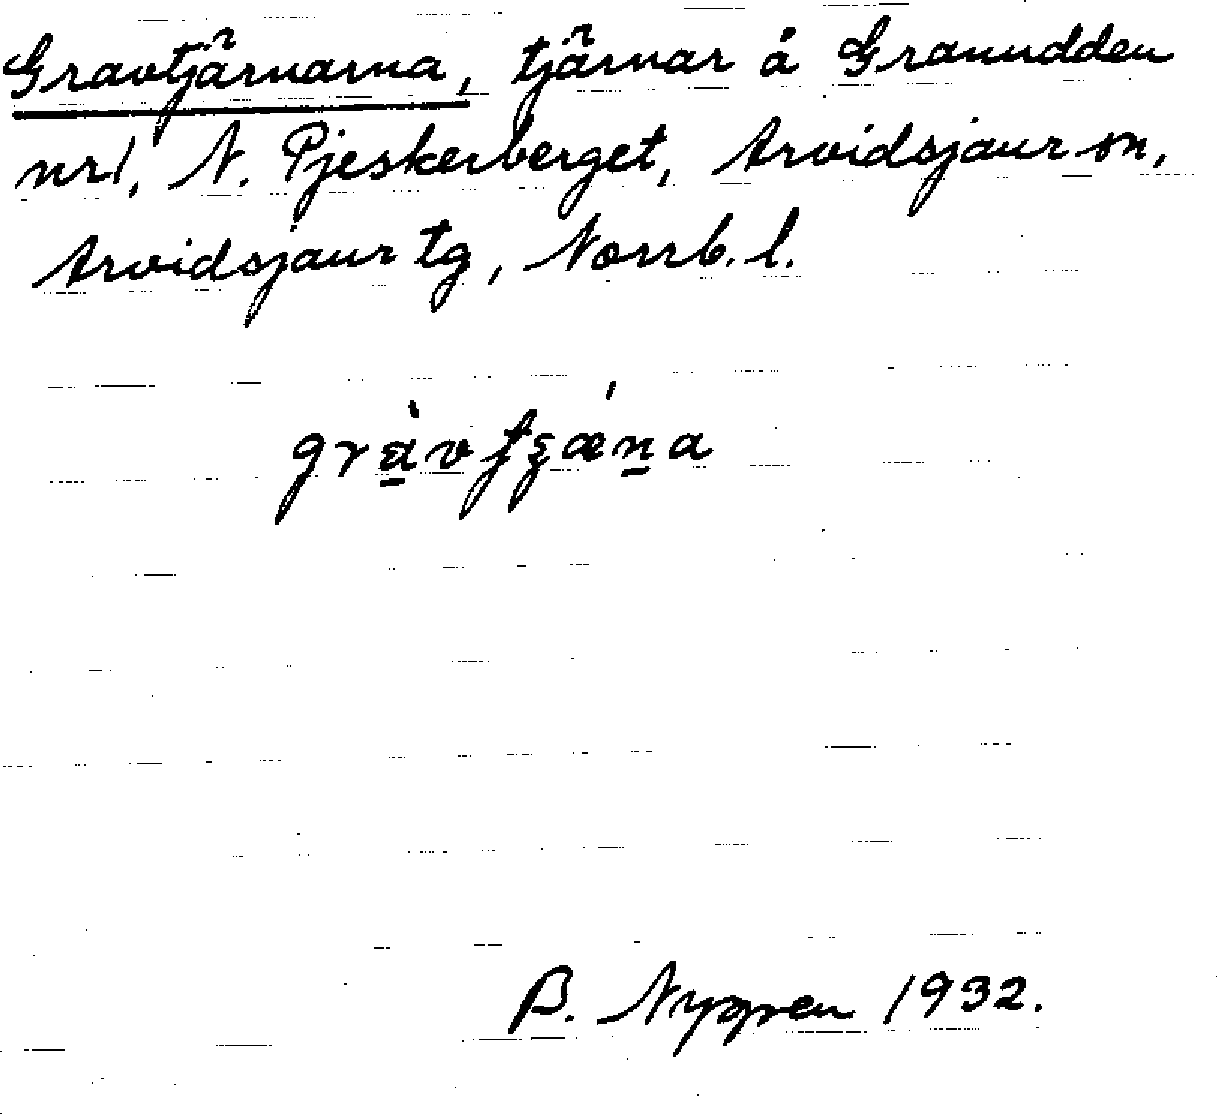 Gravtjärnarna, tjärnar å Granudden
nr 1, N. Pjeskerberget, Arvidsjaur sn,
Arvidsjaur tg, Norrb. l.
B. Nygren 1932.